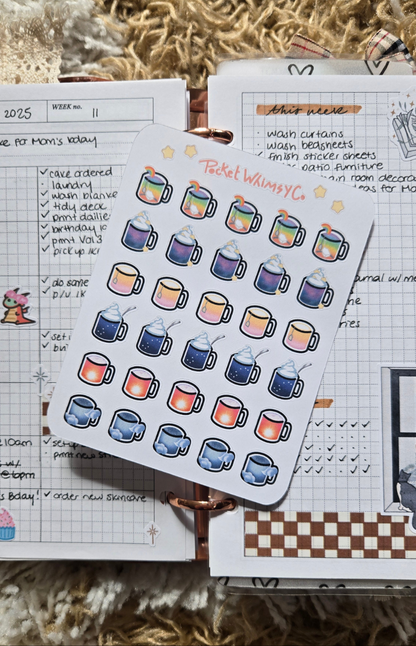 2025
WEEK no. 11
for Mom's bday
✓ cake ordered
· laundry
✓ wash blanke
✓ tidy desk
✓ pmnt dailie
✓ birthday
✓ pmnt Vol 3
✓ pick up
✓ do same
✓ p/u
✓ set
✓
10am
✓ set-up
✓ print new
6pm
's Bday!
✓ order new skincare
Pocket WhimsyCo.
this week
· wash curtains
· wash bedsheets
✓ finish sticker sheets
patio furniture
room decora
ideas for Mom
journal w/ me